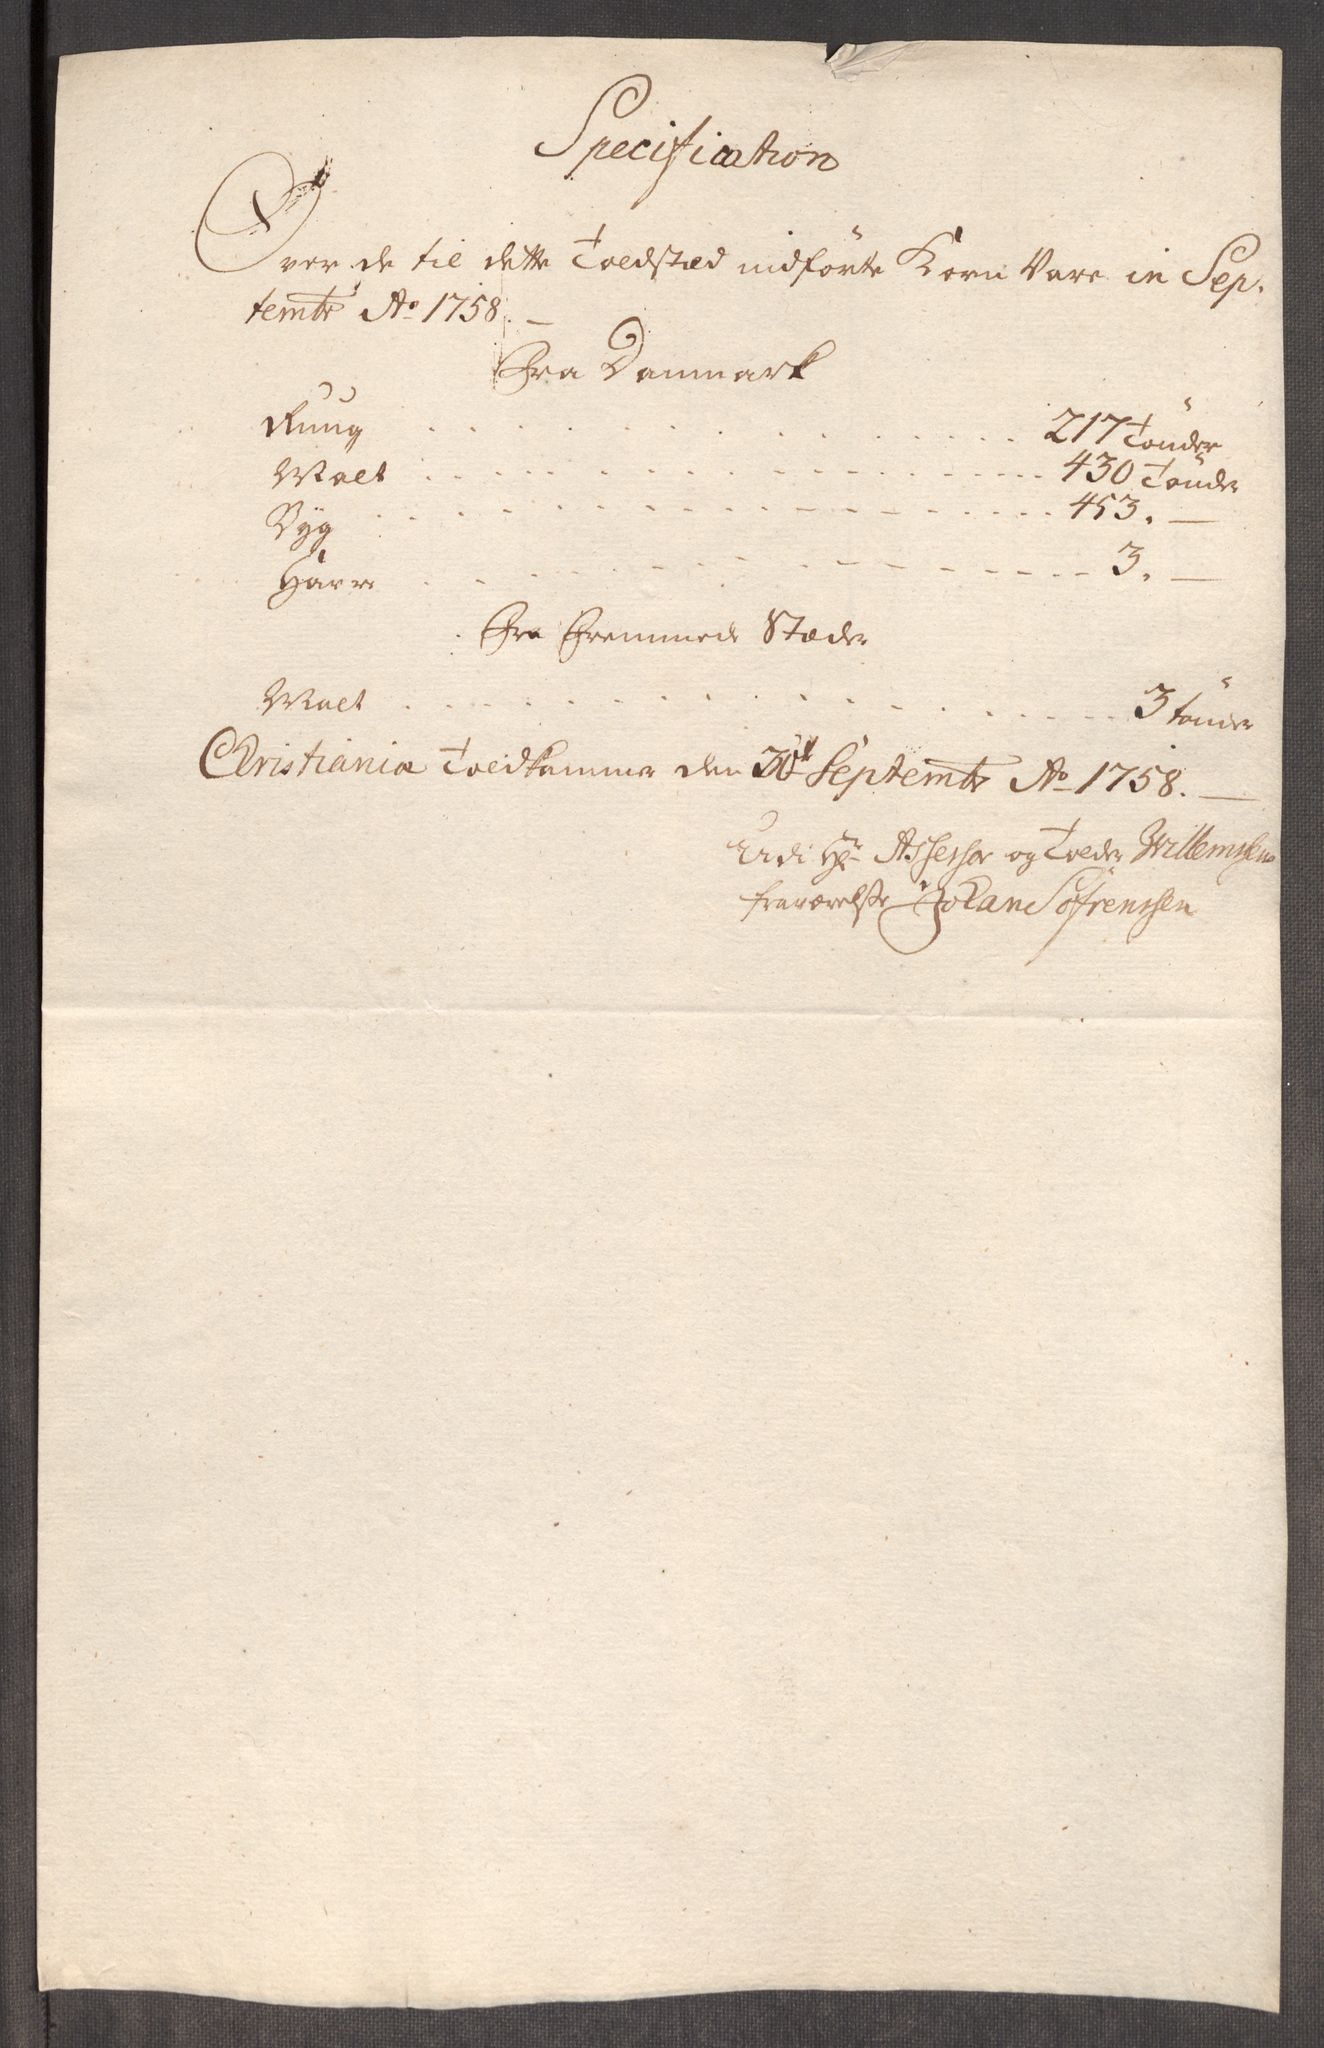 Specification
Over de til dette Toldstæd indförte Korn Vare in Sep-
tembr Ao 1758.
Fra Danmark
Ruug . . . . . . . . . . . 217 Tönder
Malt . . . . . . . . . . . 430 Tönder
Byg . . . . . . . . . . . 453. —
Havre . . . . . . . . . . . 3. —
Fra Fremmede Stæder
Malt . . . . . . . . . . . 3 tönder
Christiania Toldkammer den 30t Septembr Ao 1758. —
Udi Hr Assessor og Tolder Willemsens
fraværelse Johan Söfrenssen